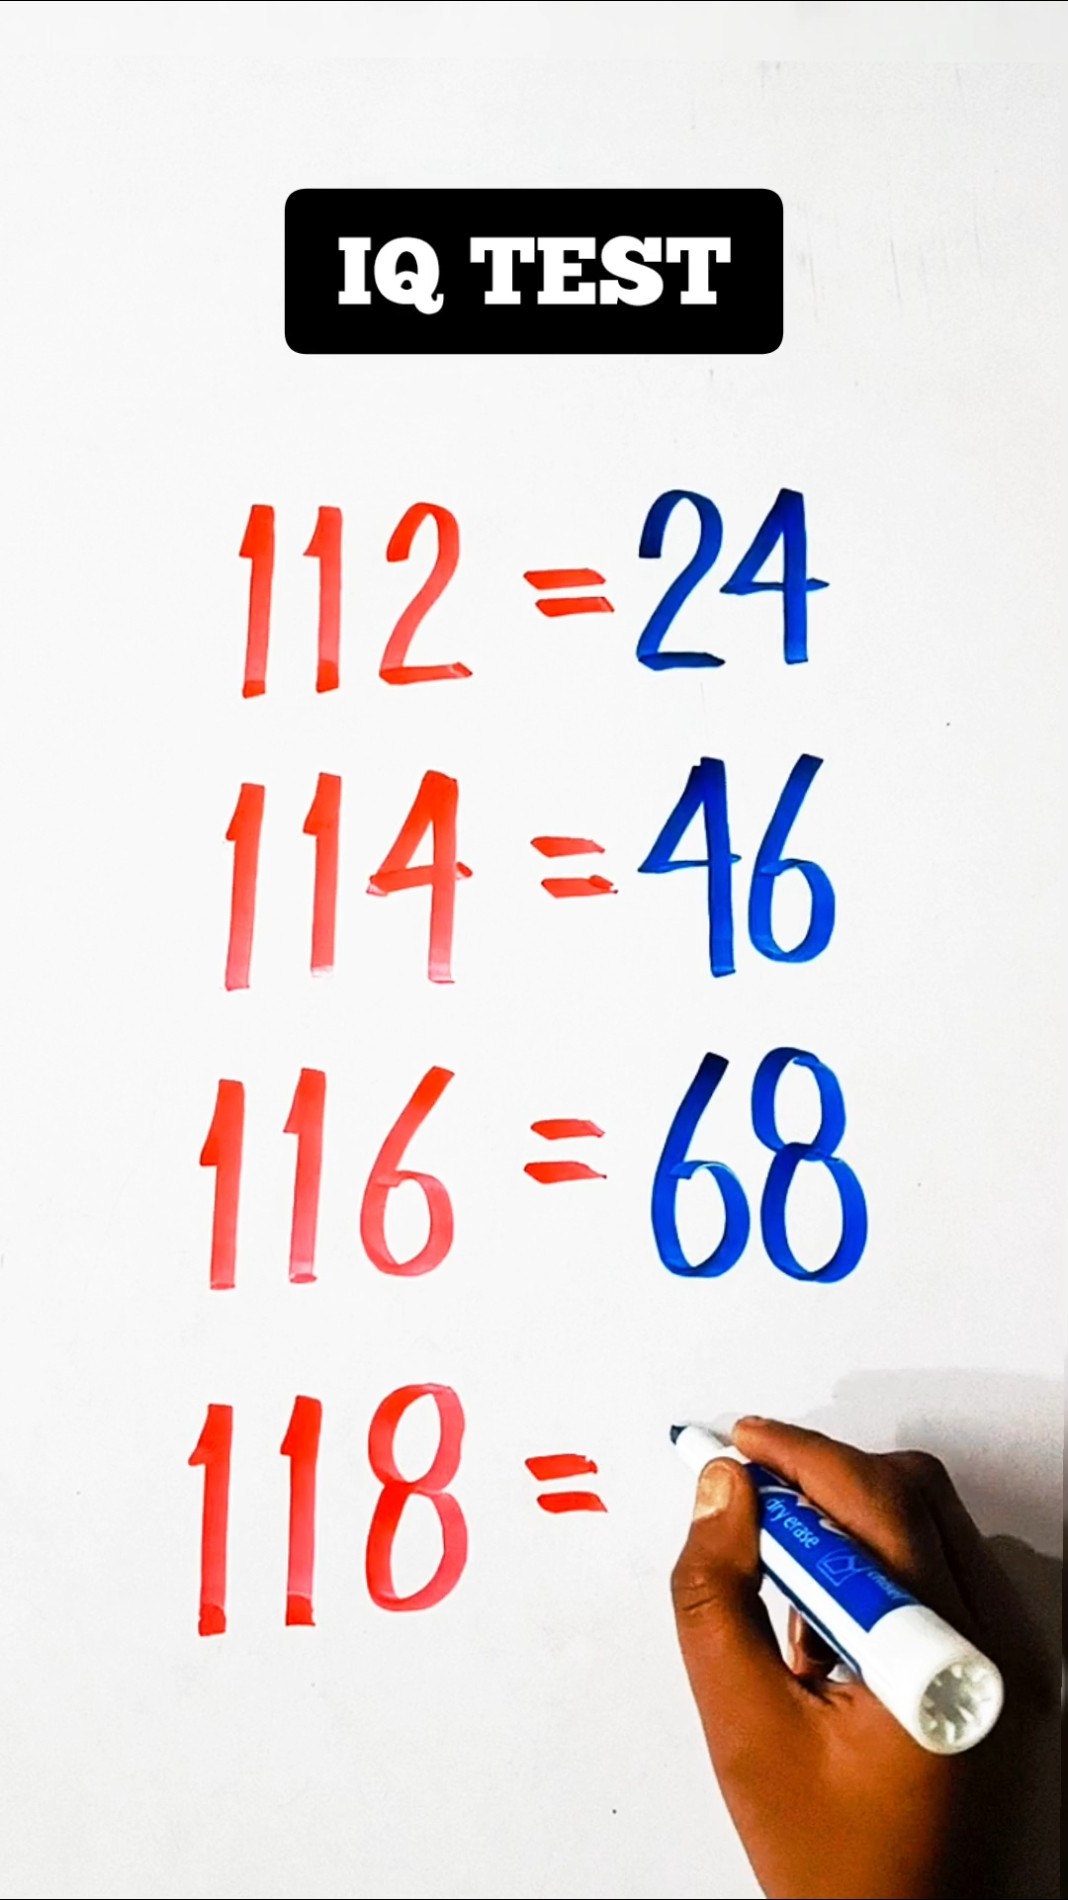 IQ TEST
112 = 24
114 = 46
116 = 68
118 =
dry erase